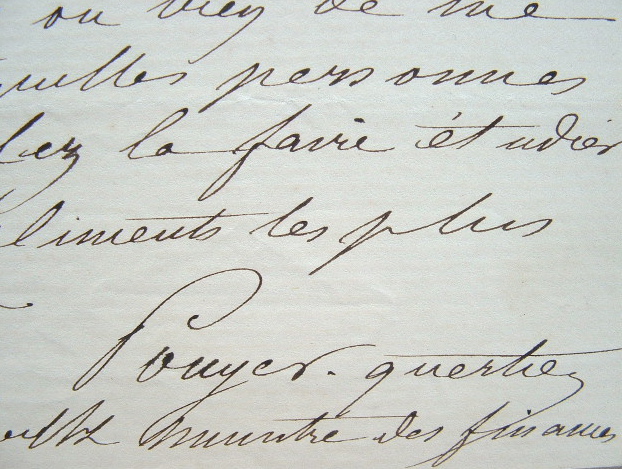 ou de me
quelles personnes
lez la faire étudier
pliments les plus
Pouyer-quertier
ministre des finances